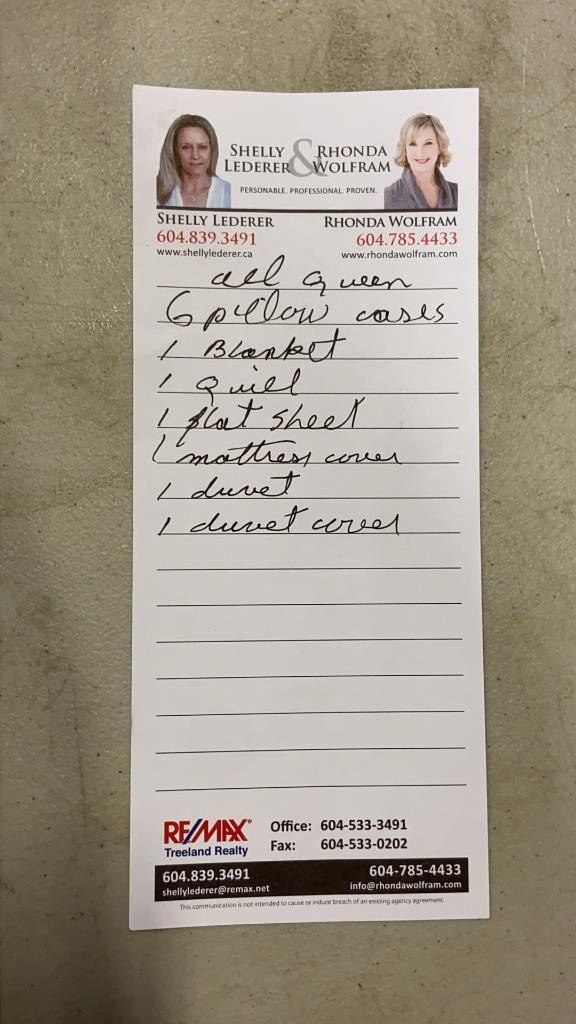 SHELLY & RHONDA
LEDERER WOLFRAM
PERSONABLE. PROFESSIONAL. PROVEN.
SHELLY LEDERER RHONDA WOLFRAM
604.839.3491 604.785.4433
www.shellylederer.ca www.rhondawolfram.com
all Queen
6 pillow cases
1 Blanket
1 Quilt
1 flat sheet
1 mattress cover
1 duvet
1 duvet cover
RE/MAX®
Treeland Realty
Office: 604-533-3491
Fax: 604-533-0202
604.839.3491 604-785-4433
shellylederer@remax.net info@rhondawolfram.com
This communication is not intended to cause or induce breach of an existing agency agreement.